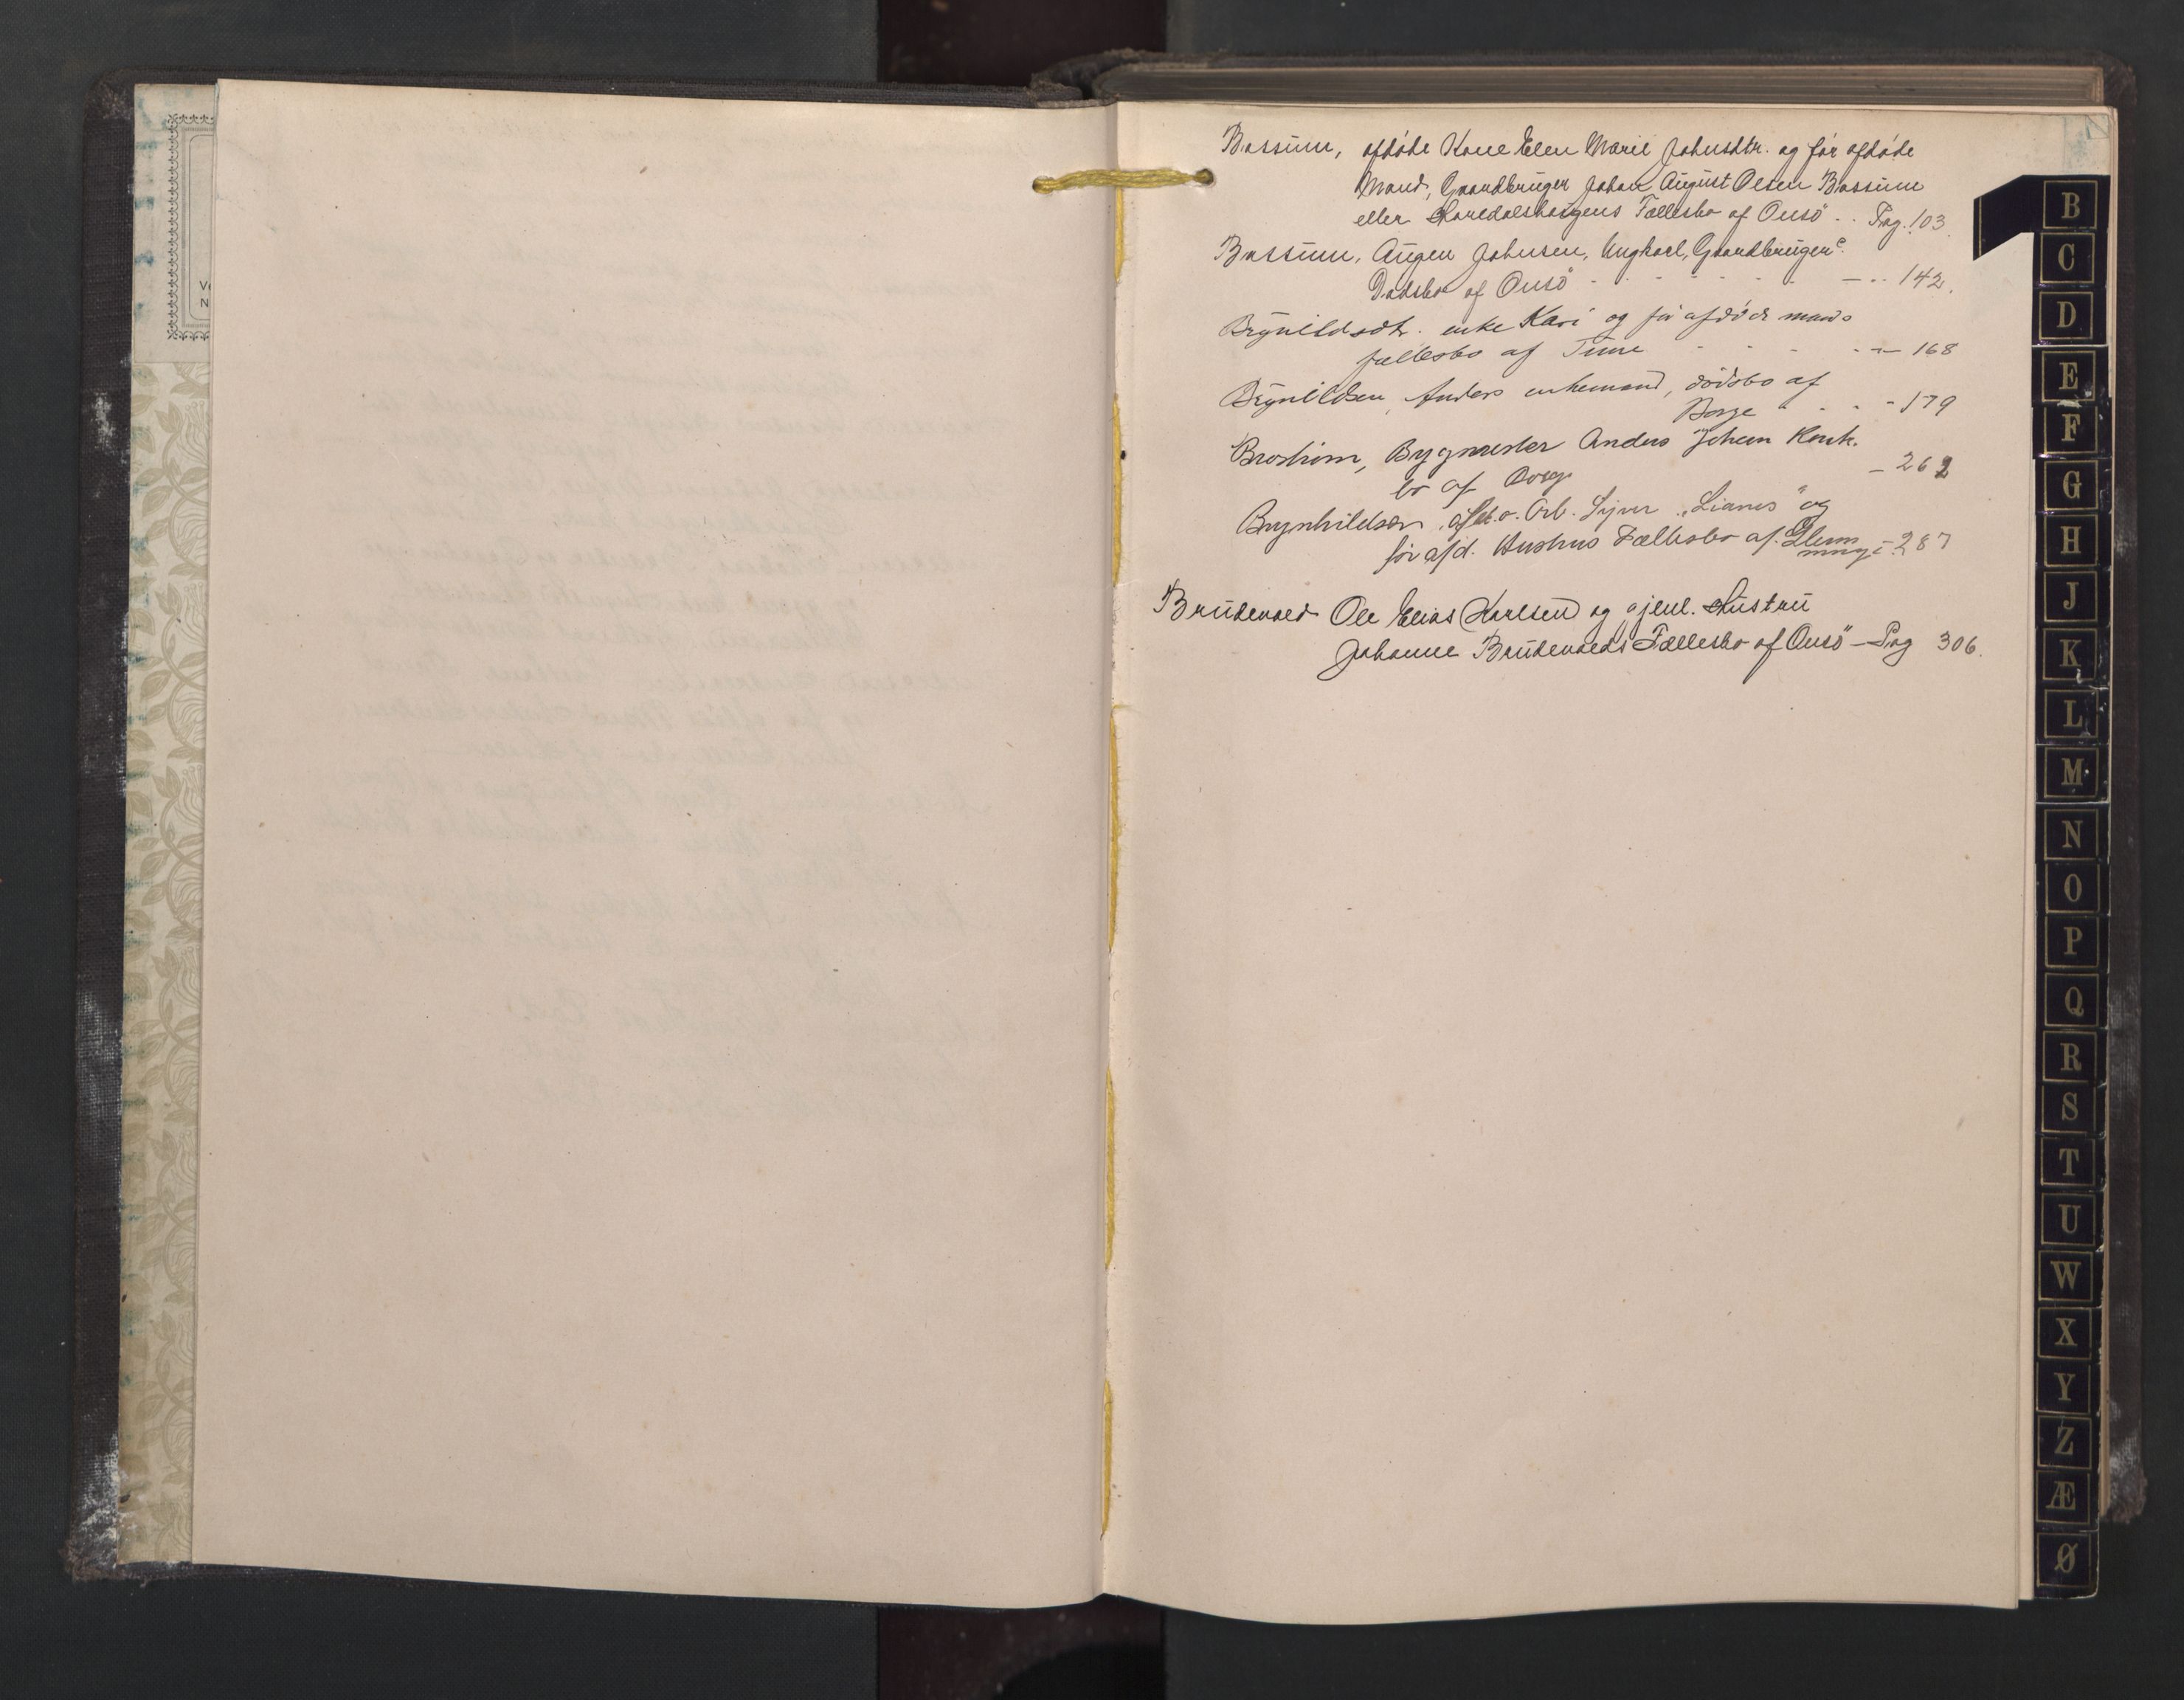 Bossum, afdøde Kone Elen Marie Johnsdtr. og før afdøde
Mand, Gaardbruger Johan August Olsen Bossum
eller Haredalshaugens Fællesbo af Onsö .. Pag. 103.
Bossum, August Johnsen, Ungkarl, Gaardbruger
Dødsbo af Onsö - - - - - - - .. 142.
Brynildsdtr. enke Kari og før afdöde mands
fællesbo af Tune - - - - - 168
Brynildsen, Anders enkemand, dödsbo af
Borge - - - - 179
Broström, Bygmester Anders Johan Konk.
bo af Borge - 262
Brynhildsen, Arb. Syver "Lianes" og
før afd. Hustrus Fællesbo af Glem
minge - 287
Brudevold Ole Elias Karlsen og gjenl. Hustru
Johanne Brudevolds Fællesbo af Onsö - Pag 306.
B
C
D
E
F
G
H
J
K
L
M
N
O
P
Q
R
S
T
U
W
X
Y
Z
Æ
Ø